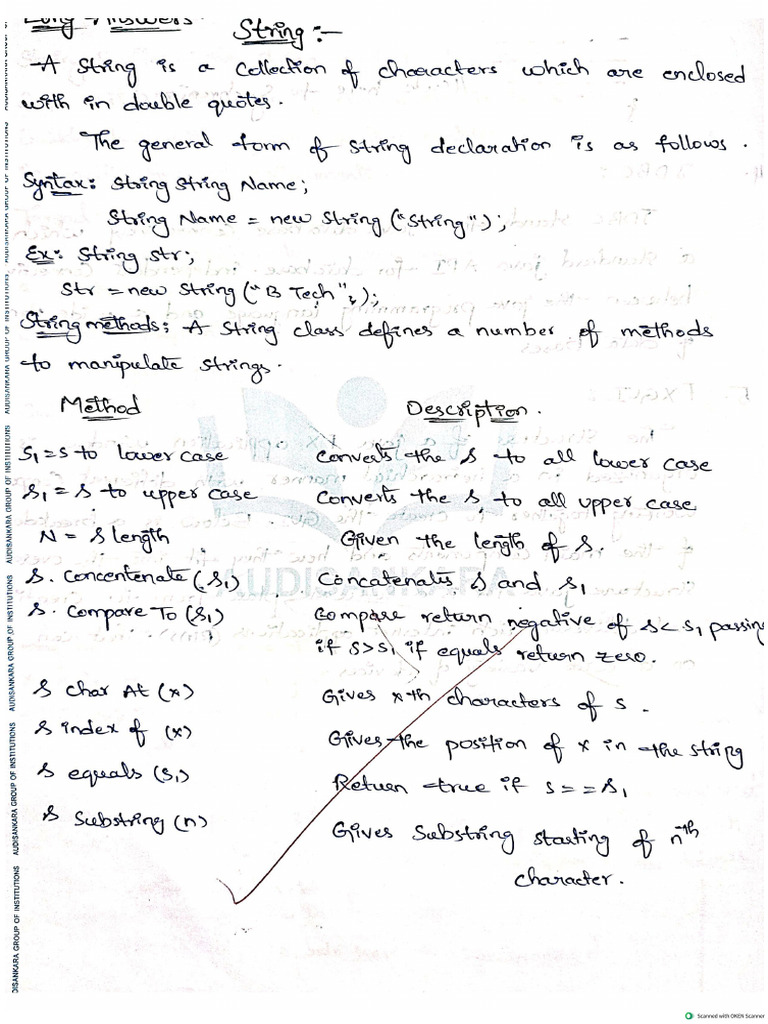 Long Answers
String :-
A String is a Collection of characters which are enclosed
with in double quotes.
The general form of string declaration is as follows.
Syntax: String String Name;
String Name = new String ("String");
Ex: String str;
Str = new String ("B Tech");
String methods: A String class defines a number of methods
to manipulate strings.
Method Description.
S1 = s to lower case Converts the S to all lower case
S1 = S to upper case Converts the S to all upper case
N = S length Given the length of S.
S. Concentenate (S1) Concatenates S and S1
S. Compare To (S1) Compare return negative of S < S1 passing
if S > S1 if equals return zero.
S char At (x) Gives x th characters of s.
S index of (x) Gives the position of x in the string
S equals (S1) Return true if S = = S1
S Substring (n) Gives Substring starting of nth
character.
AUDISANKARA
AUDISANKARA GROUP OF INSTITUTIONS
AUDISANKARA GROUP OF INSTITUTIONS
AUDISANKARA GROUP OF INSTITUTIONS
AUDISANKARA GROUP OF INSTITUTIONS
AUDISANKARA GROUP OF INSTITUTIONS
DISANKARA GROUP OF INSTITUTIONS
Scanned with OKEN Scanner